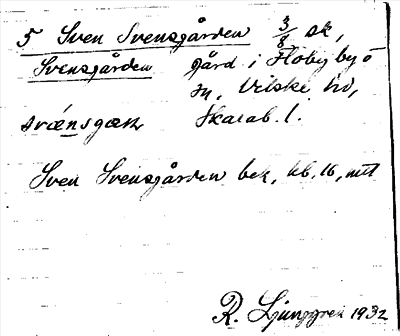 5 Sven Svensgården 3/8 sk,
Svensgården gård i Floby by o
sn, Vilske hd,
svǽnsgæn Skarab. l.
Sven Svensgården bek, kb. 16, mtl
R. Ljunggren 1932